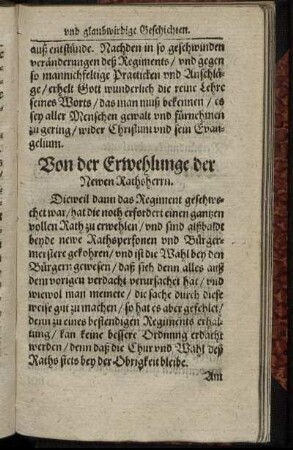 vnd glaubwirdige Geschichten.
auß entstünde. Nachdem in so geschwinden
veränderungen deß Regiments / vnd gegen
so mannichfeltige Practicken vnd Anschlä-
ge / erhelt Gott wunderlich die reine Lehre
seines Worts / das man muß bekennen / es
sey aller Menschen gewalt vnd fürnehmen
zu gering / wider Christum vnd sein Evan-
gelium.
Von der Erwehlunge der
Newen Rathsherrn.
Dieweil dann das Regiment geschwe-
chet war / hat die noth erfordert einen gantzen
vollen Rath zu erwehlen / vnd sind alßbaldt
beyde newe Rathspersonen vnd Bürger-
meistere gekohren / vnd ist die Wahl bey den
Bürgern gewesen / daß sich denn alles auß
dem vorigen verdacht verursachet hat / vnd
wiewol man meinete / die sache durch diese
weise gut zu machen / so hat es aber gefehlet /
denn zu eines bestendigen Regiments erhal-
tung / kan keine bessere Ordnung erdacht
werden / denn daß die Chur vnd Wahl deß
Raths stets bey der Obrigkeit bleibe.
Am